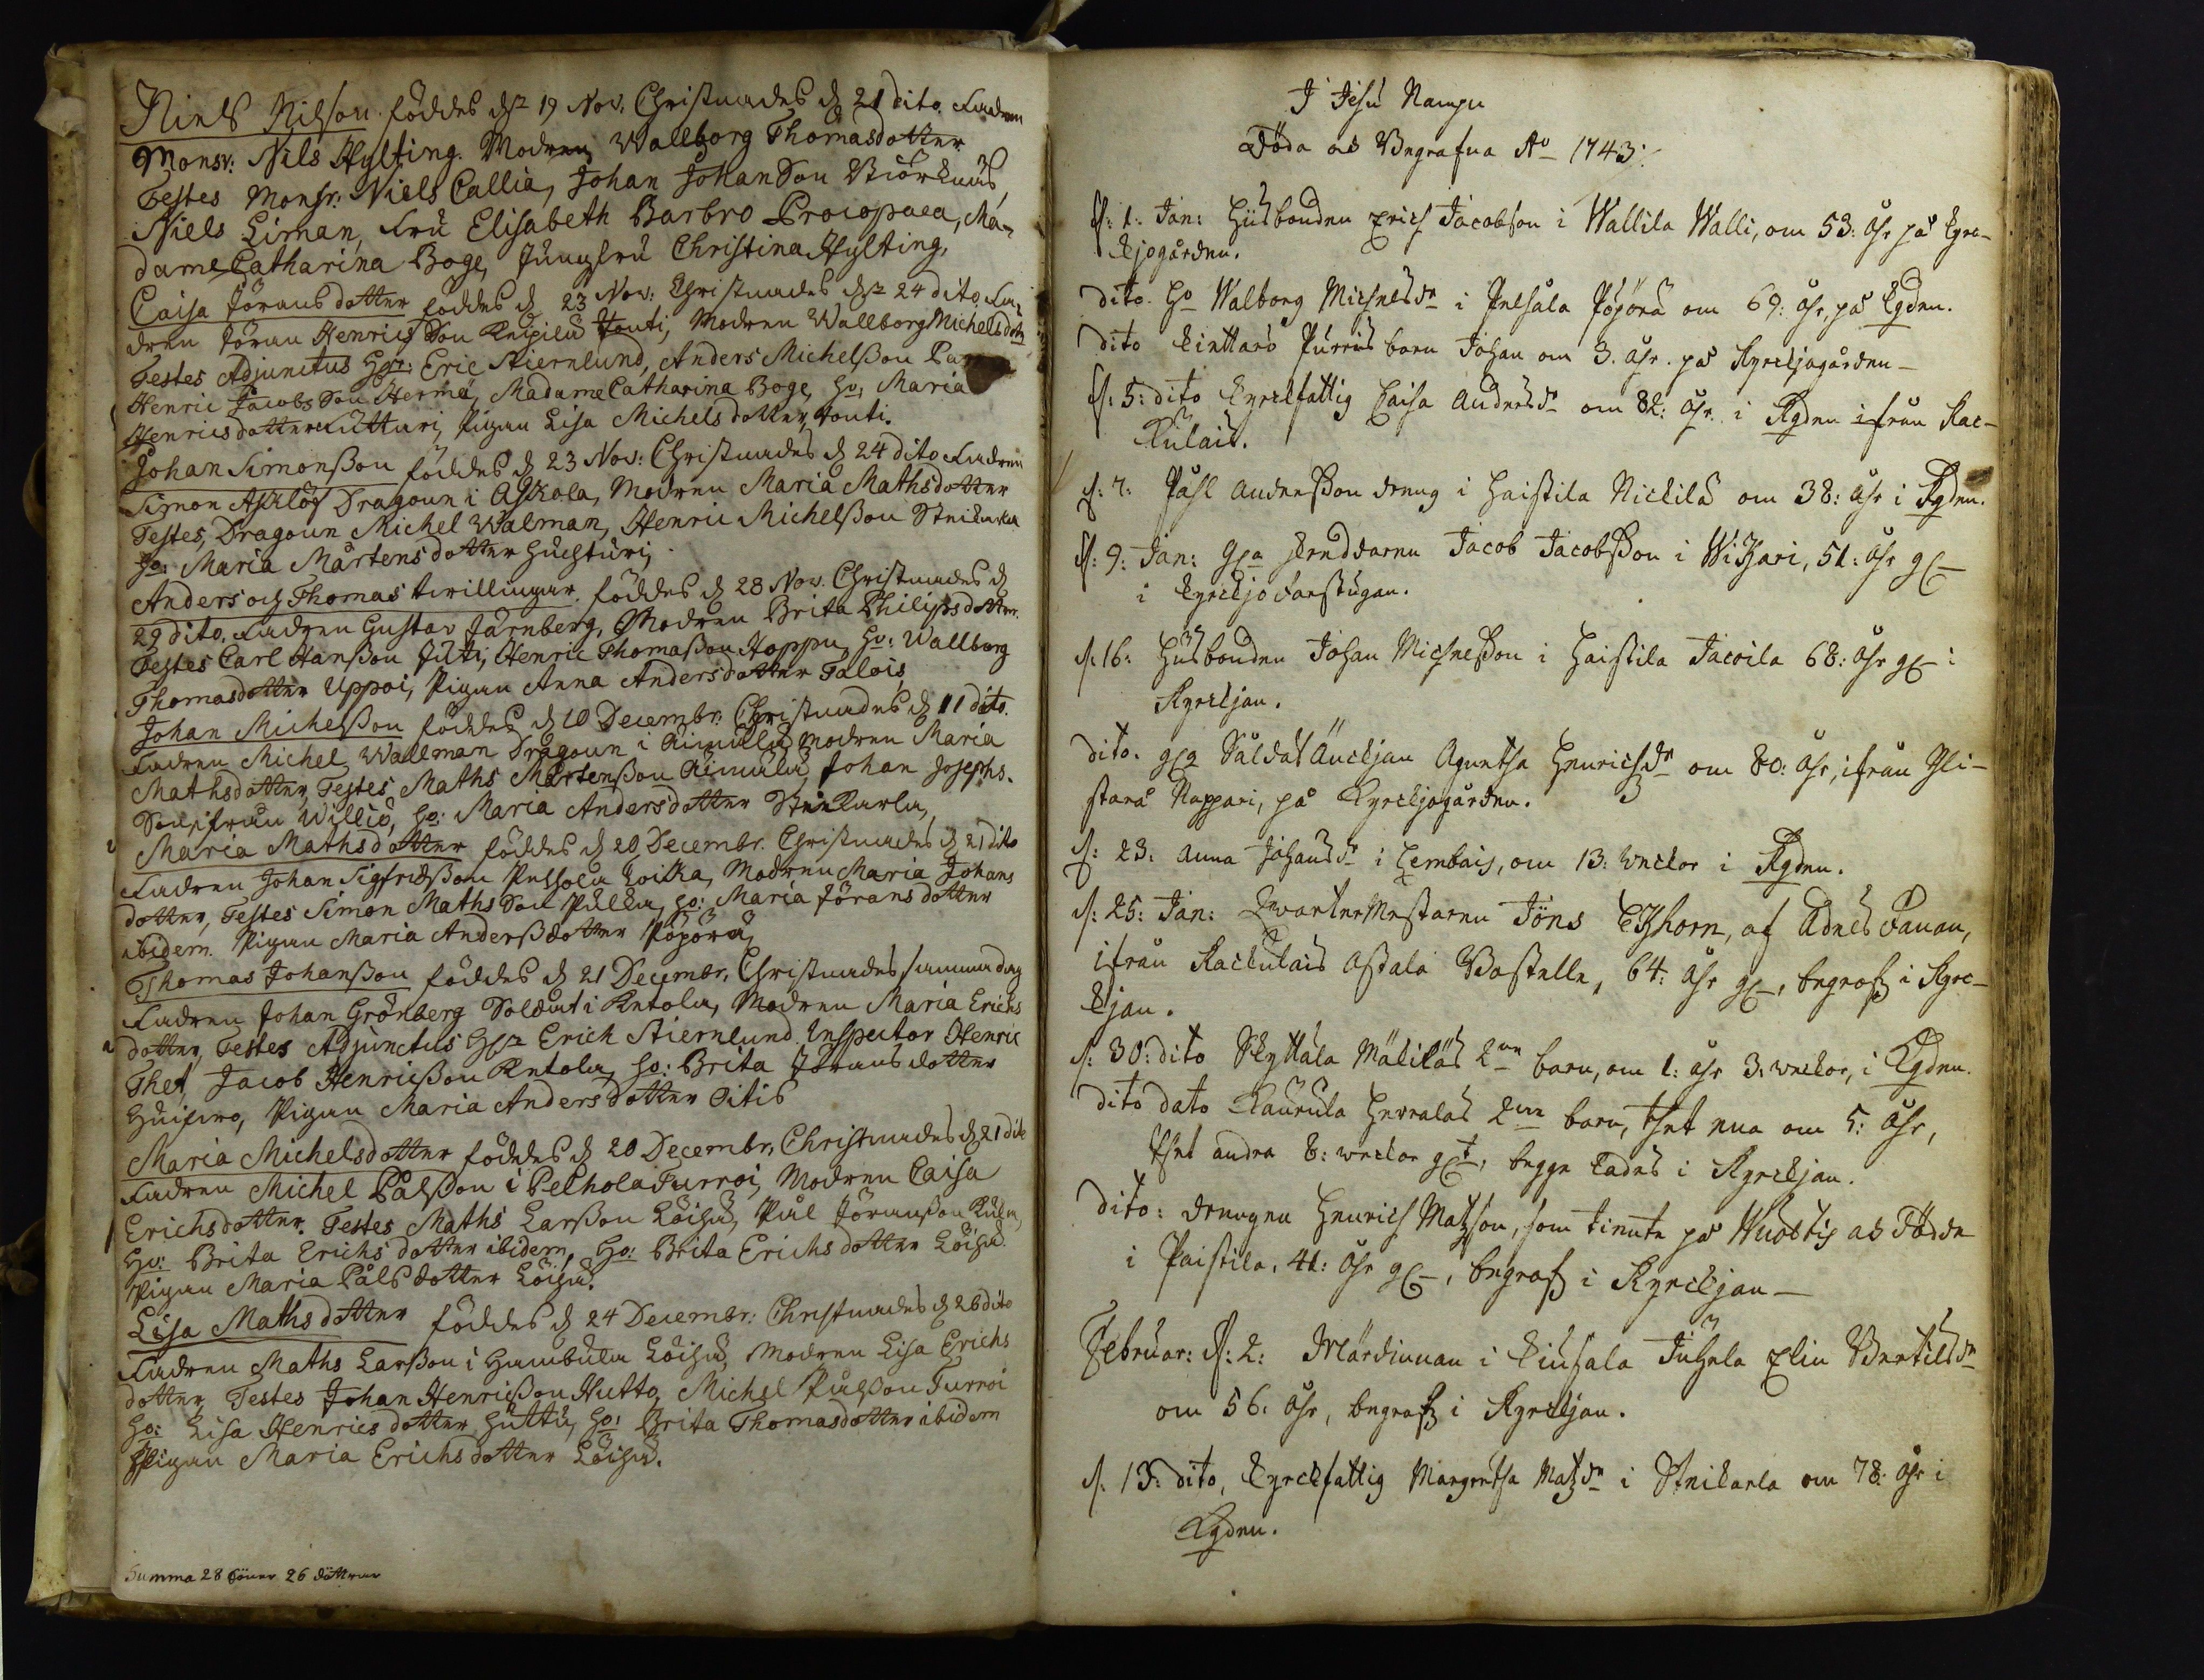 Niels Nilson föddes d: 19 Nov. Christnades d 21 dito. Fadren
Monsr: Nils Hylting. Modren Wallborg Thomasdotter
Testes Monsr: Niels Callia, Johan Johanson Biörknäs,
Niels Liman, Fru Elisabeth Barbro Procopaea, Ma-
dame Catharina Boge, Jungfru Christina Hylting.
Caisa Jöransdotter föddes d 23 Nov: Christnades d 24 dito, Fa-
dren Jöran Henricsson Knipilä Jouti, Modren Wallborg Michelsdotter
Testes Adjunctus Hgr: Eric Stiernlund, Anders Michelsson
Henric Jacobsson Hermä, Madame Catharina Boge, Ho: Maria
Henricsdotter Lutturi, Pigan Lisa Michelsdotter, Jouti.
Johan Simonsson föddes d 23 Nov: Christnades d 24 dito Fadren
Simon Asklöf Dragoun i Askola, Modren Maria Mathsdotter
Testes, Dragoun Michel Walman, Henric Michelsson Stenkarla
Ho: Maria Mårtensdotter Huchturi,
Anders och Thomas twillingar. föddes d 28 Nov. Christnades d
29 dito, Fadren Gustav Järnberg, Modren Brita Philipsdotter.
Testes Carl Hansson Juti, Henric Thomasson Hoppu, Ho: Wallborg
Thomasdotter Uppoi, Pigan Anna Andersdotter Talois
Johan Michelsson föddes d 10 Decembr: Christnades d 11 dito.
Fadren Michel Wallman Dragoun i Aimälä, Modren Maria
Mathsdotter, Testes Maths Mårtensson Aimälä, Johan Josephs-
Son ifrån Williö, Ho: Maria Andersdotter Stenkarla,
Maria Mathsdotter föddes d 20 Decembr. Christnades d 21 dito
Fadren Johan Sigfridsson Pessola Loikka, Modren Maria Johans
dotter, Testes Simon Mathsson Pulla, Ho: Maria Jöransdotter
ibidem. Pigan Maria Andersdotter Pöpörä,
Thomas Johansson föddes d 21 Decembr, Christnades samma dag
Fadren Johan Grönberg Soldat i Ketola, Modren Maria Erichs
dotter, Testes Adjunctus Hgr Erich Stiernlund Inspector Henric
Thet, Jacob Henricsson Ketola, Ho: Brita Jöransdotter
Pigan Maria Andersdotter Oitis
Maria Michelsdotter föddes d 20 Decembr, Christnades d 21 dito
Fadren Michel Pålsson i Pelhola Turroi, Modren Caisa
Erichsdotter. Testes Maths Larsson Löihä, Pål Jöransson
Ho: Brita Erichsdotter ibidem, Ho: Brita Erichsdotter Löihä
Pigan Maria Pålsdotter Löihä.
Lisa Mathsdotter föddes d 24 Decembr: Christnades d 26 dito
Fadren Maths Larsson i Hambula Löihä, Modren Lisa Erichs
dotter, Testes Johan Henricsson Hutto, Michel Pålsson Turroi
Ho: Lisa Henricsdotter Huttu, Ho: Brita Thomasdotter ibidem
Pigan Maria Erichsdotter Löihä.
Summa 28 söner 26 döttrar
I Jesu Nampn
Döda ok Begrafna Ao 1743:
d: 1: Jan: Husbonden Erich Jacobson i Wallila Walli, om 53: åhr på kyrc-
kjogården.
dito. Ho Walborg Michelsdr i Pelsåla Pöpörä om 69: åhr, på Kgden.
dito Kinttarö Purris barn Johan om 3. åhr. på Kyrckjogården
d: 5: dito kyrckfattig Caisa Andersdr om 82: åhr. i Kgden ifrån Rac-
kulais.
d: 7: Påhl Andersson dreng i Haistila Nickilä om 38: åhr i Kgden.
d: 9: Jan: Jacob Jacobsson i Wichari, 51: åhr
i kyrckjo farstugan.
d. 16: Husbonden Johan Michelsson i Haistila Jacoila 68: åhr i
Kyrckjan.
dito. Såldat Änckjan Agnetha Henrichsdr om 80: åhr, ifrån Yli-
stara Nappari, på Kyrckjogården.
d: 23: Anna Johansdr i Lembois, om 13: weckor i Kgden.
d: 25: Jan: QvarterMestaren Jöns Ekhorn, af Adels Fanan,
ifrån Rackulais Astala Bostelle, 64: åhr, begrofs i Kyrc-
kjan.
d: 30: dito Skyttälä Mäkiläs 2ne barn, om 1: åhr 3: weckor, i Kgden.
dito dato Kaurula Herralas 2ne barn, thet ena om 5: åhr,
thet andra 8: weckor, begge lades i Kyrckjan.
dito: drengen Henrich Matzson, som tiente på Wuoltis ok Födde
i Paistila, 41: åhr, begrofs i Kyrckjan
Februar: d: 2: Wärdinnan i Kiusala Juhela Elin Bertilsdr
om 56: åhr, begrofs i Kyrckjan.
d. 13: dito, kyrckfattig Margretha Matzdr i Stenkarla om 78: åhr i
Kgden.